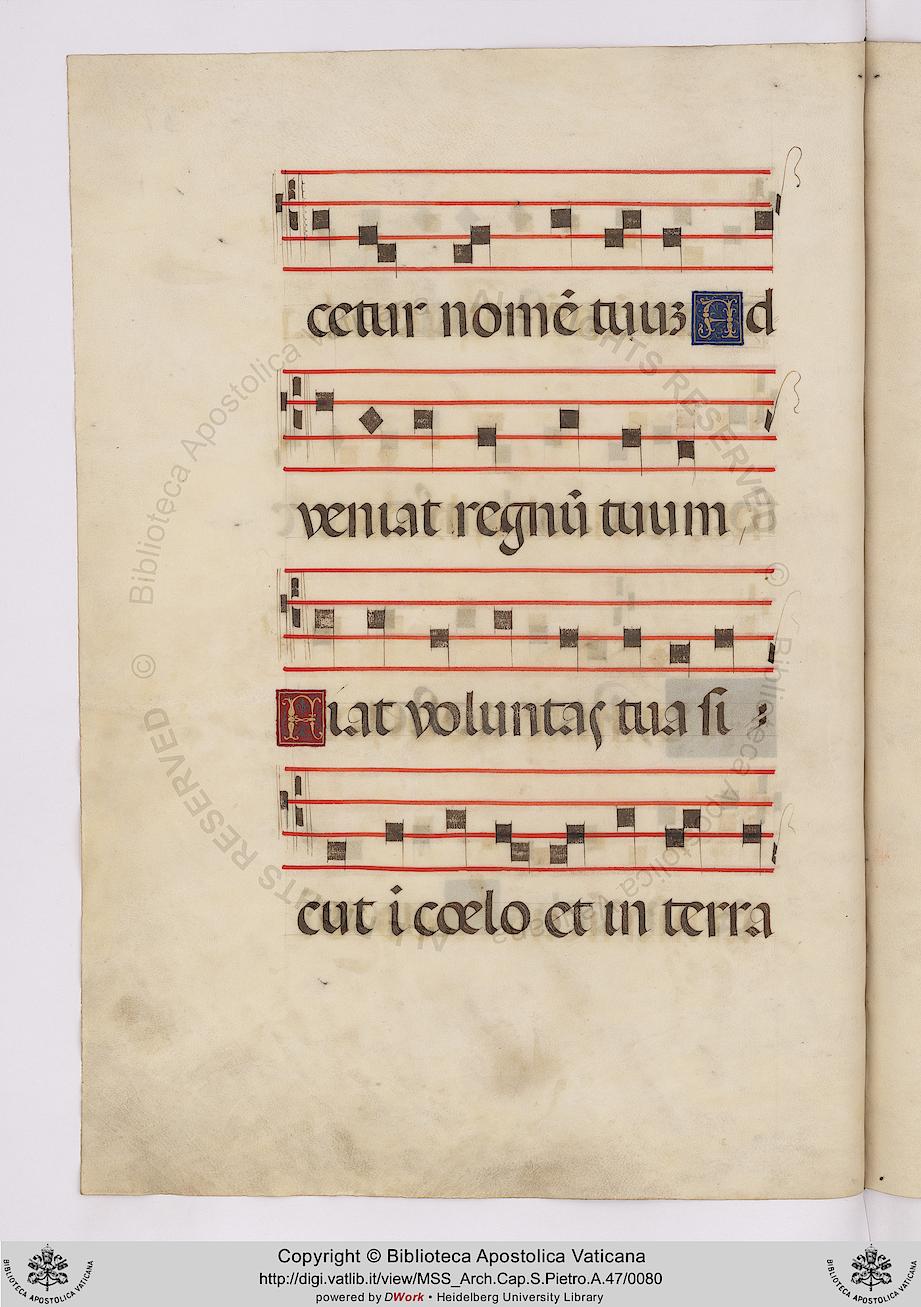 cetur nomē tuuʒ Ad
veniat regnū tuum
Fiat voluntas tua si
cut ī cœlo et in terra
© Biblioteca Apostolica Vaticana
ALL RIGHTS RESERVED
© Biblioteca Apostolica Vaticana
ALL RIGHTS RESERVED
Copyright © Biblioteca Apostolica Vaticana
http://digi.vatlib.it/view/MSS_Arch.Cap.S.Pietro.A.47/0080
powered by DWork • Heidelberg University Library
BIBLIOTECA APOSTOLICA VATICANA
BIBLIOTECA APOSTOLICA VATICANA